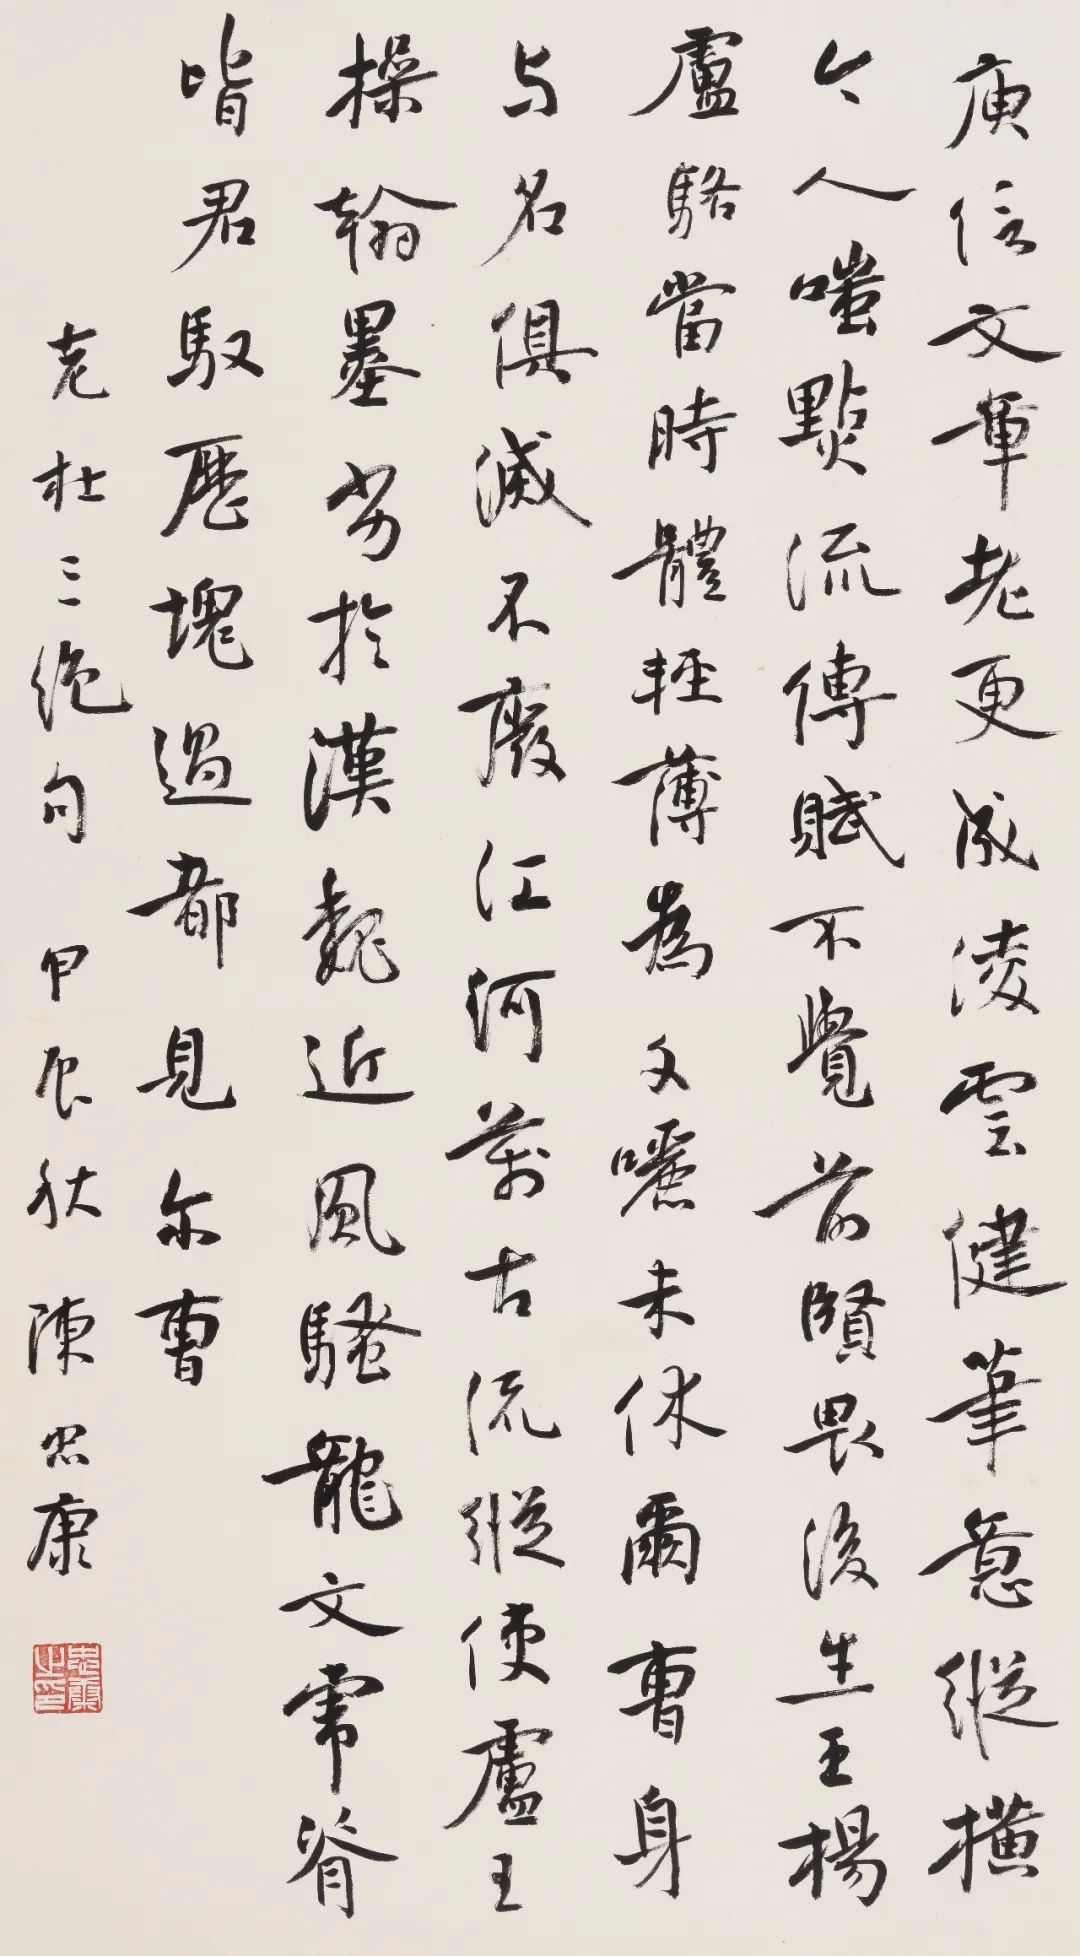 庾信文章老更成凌雲健筆意縱橫
今人嗤點流傳賦不覺前賢畏後生王楊
盧駱當時體輕薄為文哂未休爾曹身
与名俱滅不廢江河萬古流縱使盧王
操翰墨劣於漢魏近風騷龍文虎脊
皆君馭歷塊過都見尔曹
老杜三絕句 甲辰秋 陳思康